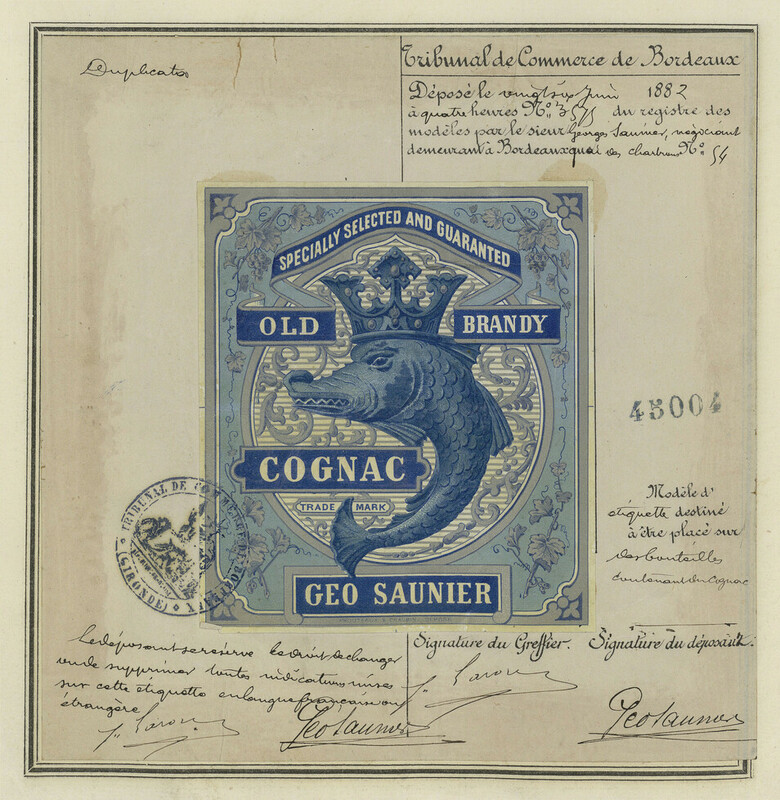 Duplicata
Tribunal de Commerce de Bordeaux
Déposé le vingt six Juin 1882
à quatre heures N° 3575 du registre des
modèles par le sieur Georges Saunier, négociant
demeurant à Bordeaux quai des chartrons N° 54
SPECIALLY SELECTED AND GUARANTED
OLD BRANDY
45004
COGNAC
TRADE MARK
GEO SAUNIER
TRIBUNAL DE COMMERCE DE BORDEAUX
(GIRONDE)
Modèle d'
étiquette destiné
à être placé sur
des bouteilles
contenant du Cognac
Le déposant se réserve le droit de changer
ou de supprimer toutes indications mises
sur cette étiquette en langue française ou
étrangère
Signature du Greffier. Signature du déposant.
Geo Saunier
Geo Saunier